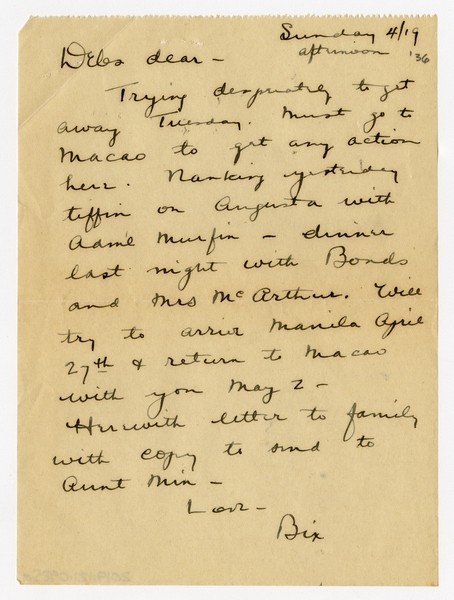 Sunday 4/19
afternoon '36
Debs dear -
Trying desperately to get
away Tuesday. Must go to
Macao to get any action
here. Nanking yesterday
tiffin on Augusta with
Adml Murfin - dinner
last night with Bonds
and Mrs McArthur. Will
try to arrive Manila April
27th & return to Macao
with you May 2 -
Herewith letter to family
with copy to send to
Aunt Min -
Love -
Bix